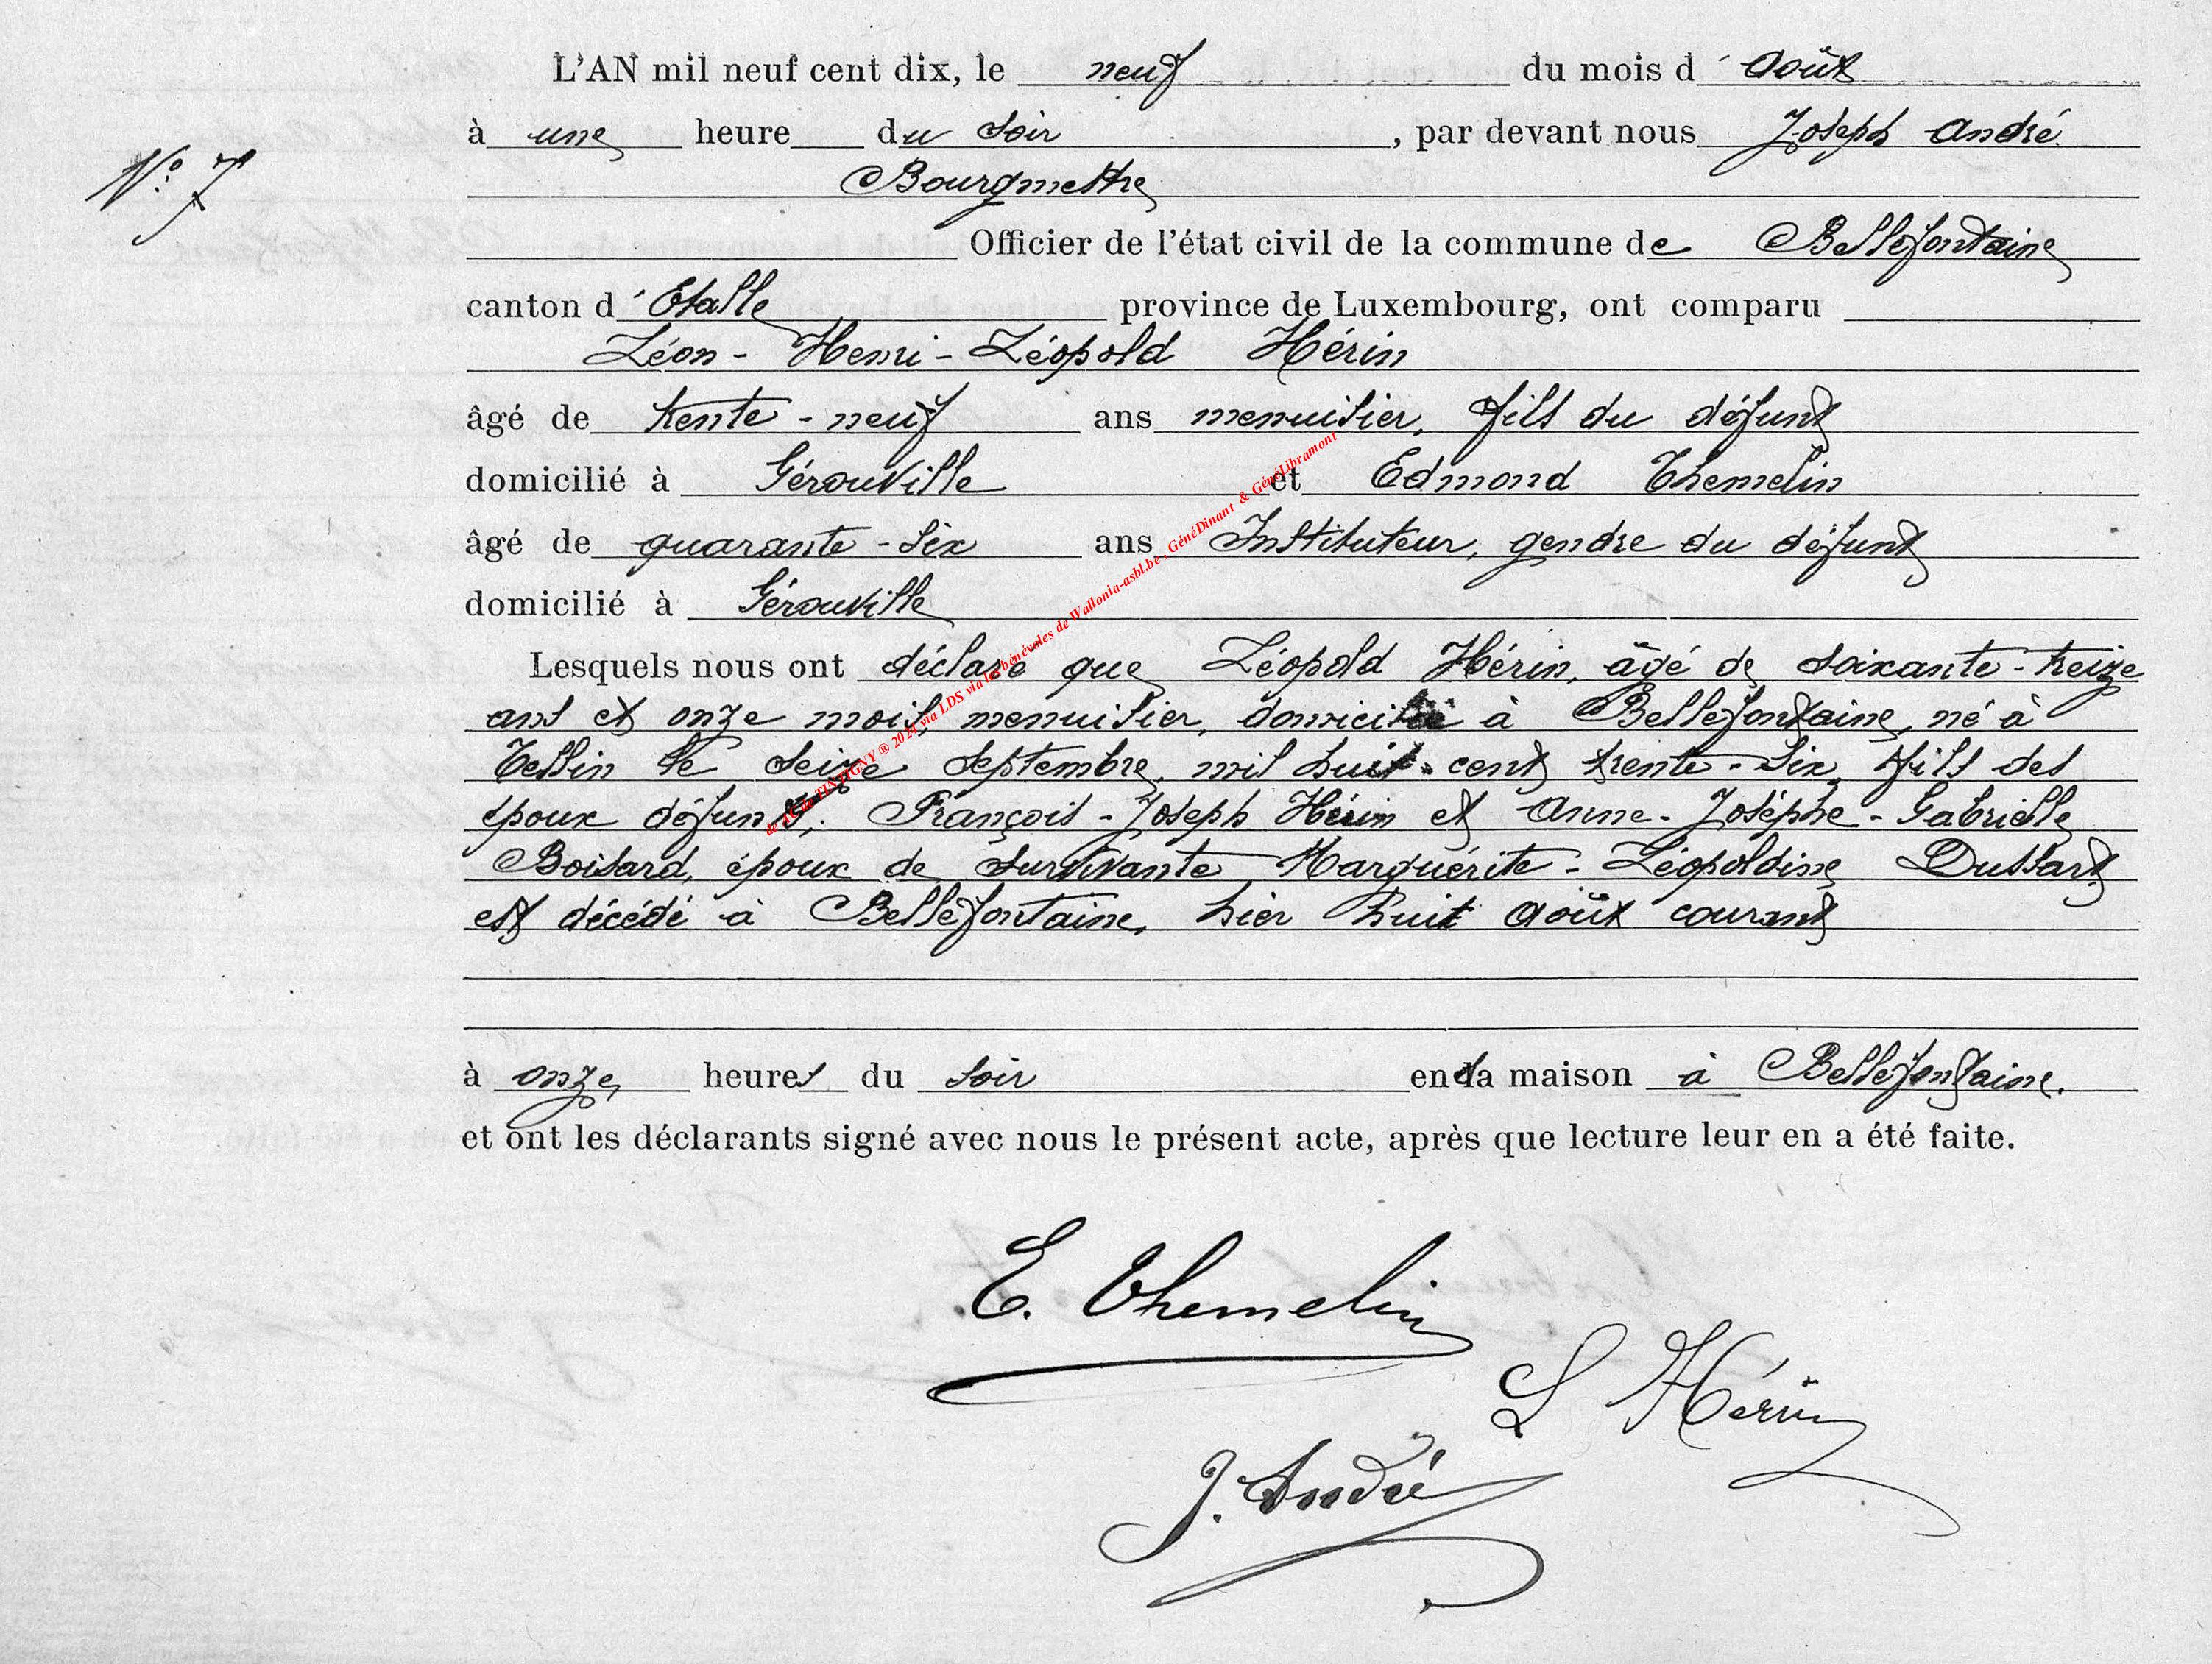 L'AN mil neuf cent dix, le neuf du mois d'Août
à une heure du soir, par devant nous Joseph André
N° 7
Bourgmestre
Officier de l'état civil de la commune de Bellefontaine
canton d'Etalle province de Luxembourg, ont comparu
Léon-Henri-Léopold Hérin
âgé de trente-neuf ans menuisier, fils du défunt
domicilié à Gérouville et Edmond Themelin
âgé de quarante-six ans Instituteur, gendre du défunt
domicilié à Gérouville
Lesquels nous ont déclaré que Léopold Hérin, âgé de soixante-treize
ans et onze mois, menuisier, domicilié à Bellefontaine, né à
Tellin le seize septembre, mil huit-cent trente-six, fils des
époux défunts: François-Joseph Hérin et Anne-Josèphe-Gabrielle
Boisard, époux de survivante Marguérite-Léopoldine Dussart
est décédé à Bellefontaine, hier huit août courant
à onze heures du soir en sa maison à Bellefontaine.
et ont les déclarants signé avec nous le présent acte, après que lecture leur en a été faite.
E. Themelin
L Hérin
J. André
TINTIGNY ® 2024 via LDS via les bénévoles de Wallonia-asbl.be - GénéDinant & GénéLibramont